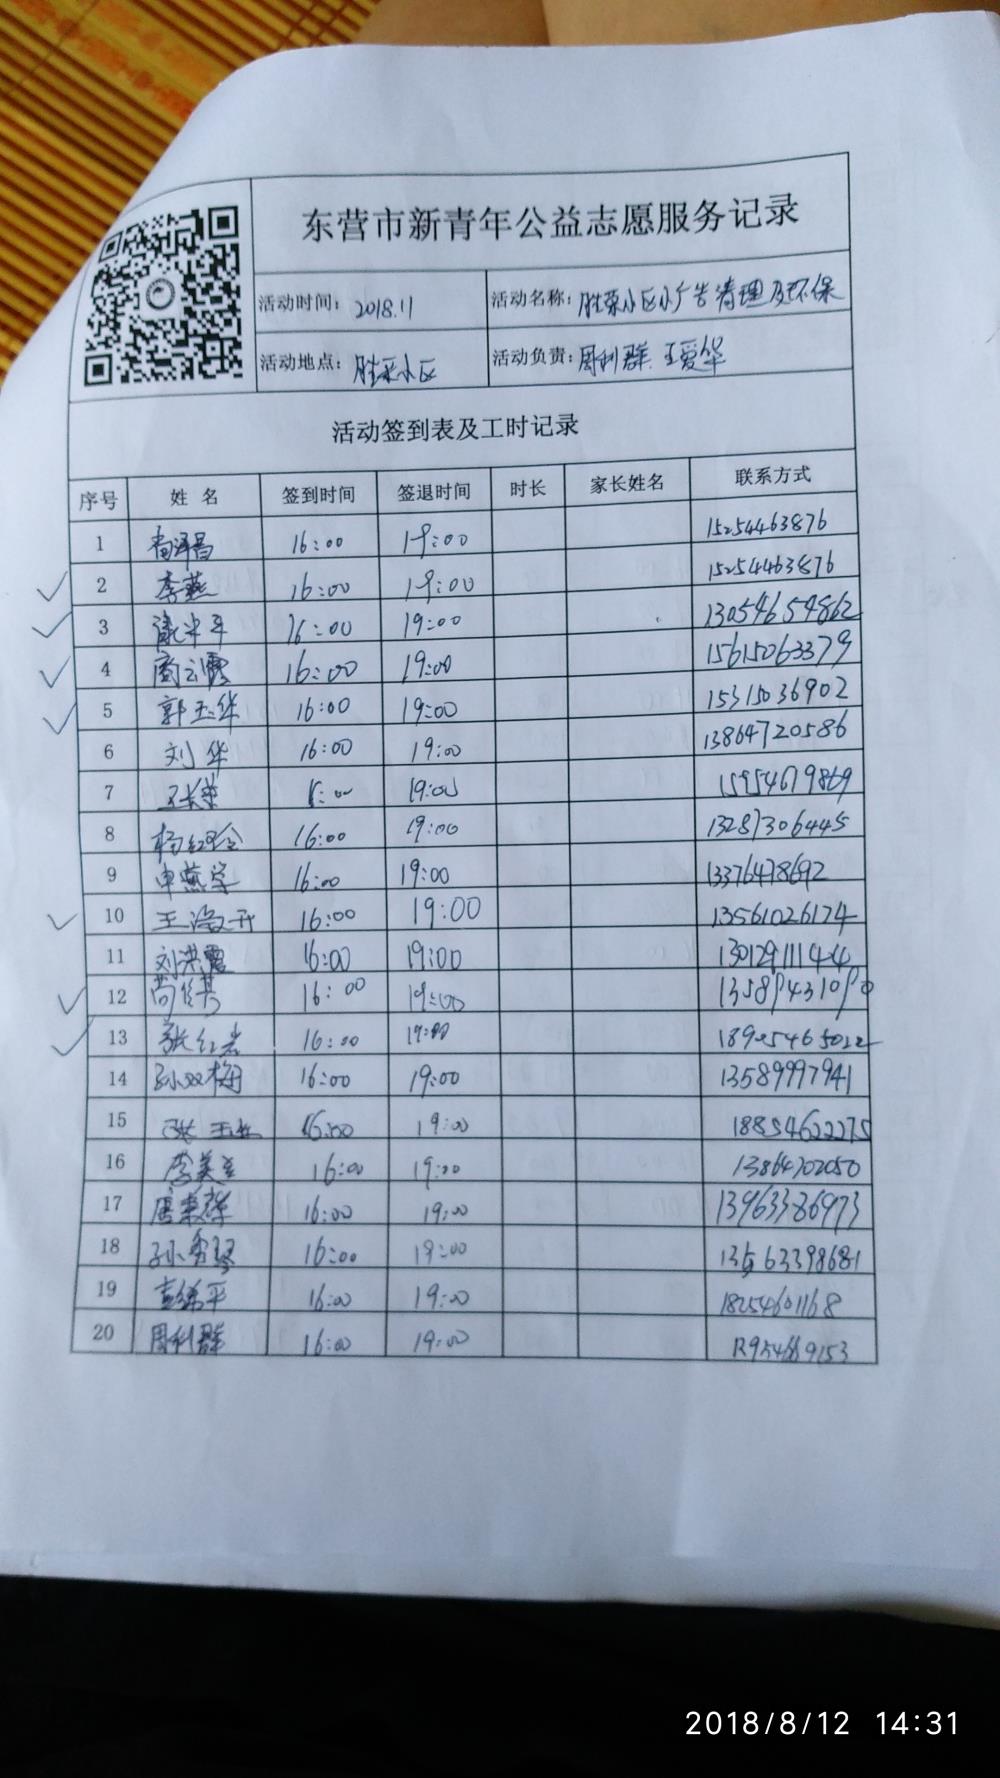 东营市新青年公益志愿服务记录
活动时间: 2018.11 活动名称: 胜采小区小广告清理及环保
活动地点: 胜采小区 活动负责: 周利群 王爱华
活动签到表及工时记录
序号 姓名 签到时间 签退时间 时长 家长姓名 联系方式
1 16:00 19:00 15254463876
2 李燕 16:00 19:00 15254463876
3 16:00 19:00 13054654862
4 16:00 19:00 15615063379
5 郭玉华 16:00 19:00 15315036902
6 刘华 16:00 19:00 13864720586
7 19:00 15954679869
8 杨红玲 16:00 19:00 13287306445
9 申燕 16:00 19:00 13376478692
10 王 16:00 19:00 13561026174
11 刘洪霞 16:00 19:00 13012911144
12 16:00 19:00
13 张红岩 16:00 19:00 18905465022
14 孙双梅 16:00 19:00 13589997941
15 张 16:00 19:00 18854622275
16 李美 16:00 19:00 13864702050
17 16:00 19:00 13963386973
18 孙秀琴 16:00 19:00 13563398681
19 彭绵平 16:00 19:00 18254601168
20 周利群 16:00 19:00
2018/8/12 14:31